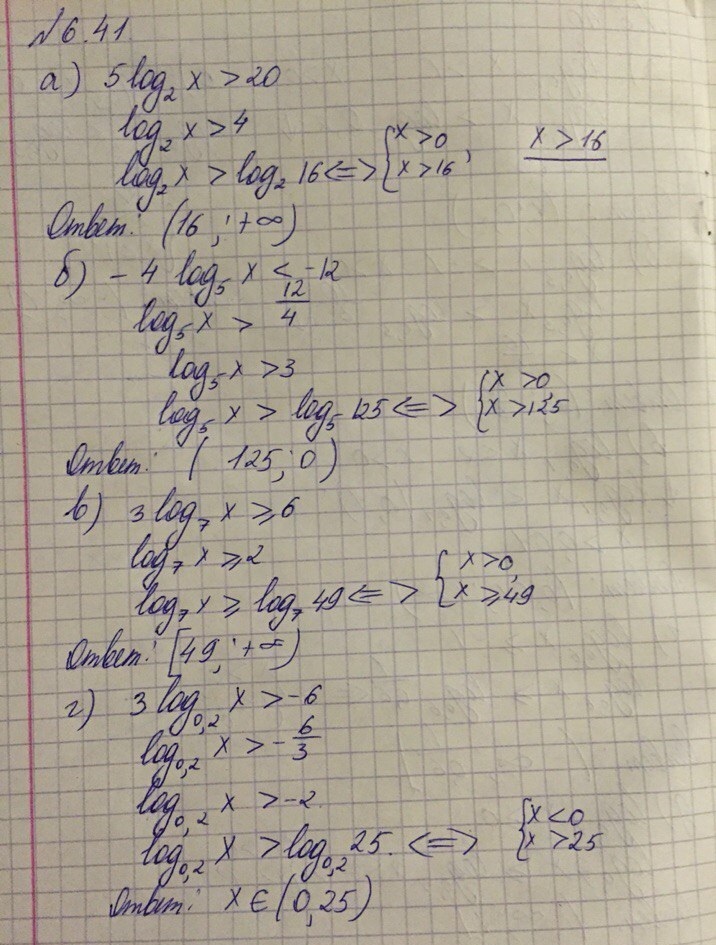 №6.41.
а) 5 log₂ x > 20
log₂ x > 4
log₂ x > log₂ 16 <=> { x > 0, x > 16    x > 16
Ответ: (16 ; +∞)
б) - 4 log₅ x < -12
log₅ x > 12/4
log₅ x > 3
log₅ x > log₅ 125 <=> { x > 0, x > 125
Ответ: ( 125 ; 0 )
в) 3 log₇ x ≥ 6
log₇ x ≥ 2
log₇ x ≥ log₇ 49 <=> { x > 0, x ≥ 49
Ответ: [49 ; +∞)
г) 3 log₀,₂ x > -6
log₀,₂ x > - 6/3
log₀,₂ x > -2
log₀,₂ x > log₀,₂ 25. <=> { x < 0 x > 25
Ответ: x ∈ (0, 25)